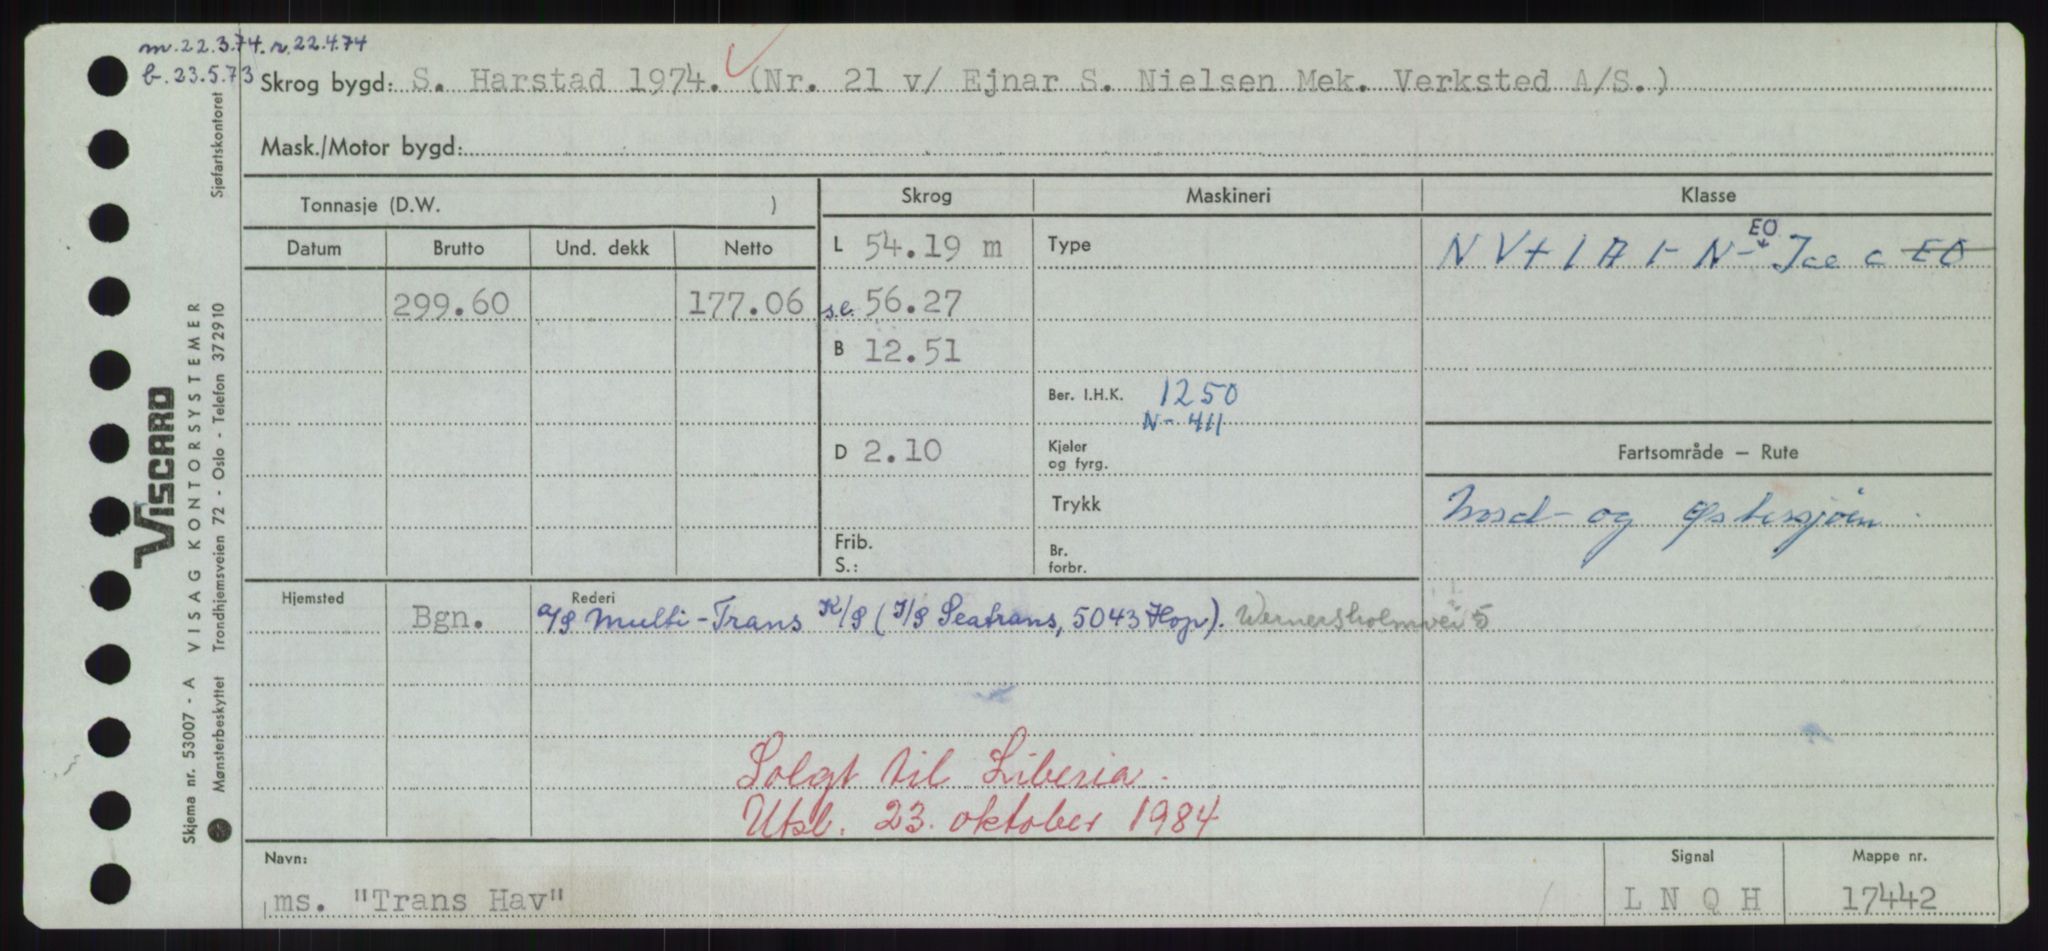 m. 22.3.74. r. 22.4.74
b. 23.5.73
Skrog bygd: S. Harstad 1974. (Nr. 21 v/ Ejnar S. Nielsen Mek. Verksted A/S.)
Mask./Motor bygd:
Tonnasje (D.W. )
Skrog
Maskineri
Klasse
Datum Brutto Und. dekk Netto
L 54.19 m
Type
EO
NV + 1 A 1 - N - Ice C EO
299.60 177.06
s.l. 56.27
B 12.51
Ber. I.H.K. 1250
N - 411
D 2.10
Kjeler og fyrg.
Fartsområde — Rute
Trykk
Nord- og Østersjøen
Frib.
S.:
Br. forbr.
Hjemsted
Rederi
Bgn. A/S Multi-Trans K/S (I/S Seatrans, 5043 Hop). Wernersholmvei 5
Solgt til Liberia.
Utsl. 23. oktober 1984
Navn:
Signal
Mappe nr.
ms. "Trans Hav"
L N Q H
17442
Sjøfartskontoret
VISCARD
VISAG KONTORSYSTEMER
Trondhjemsveien 72 - Oslo - Telefon 372910
Skjema nr. 53007 - A
Mønsterbeskyttet